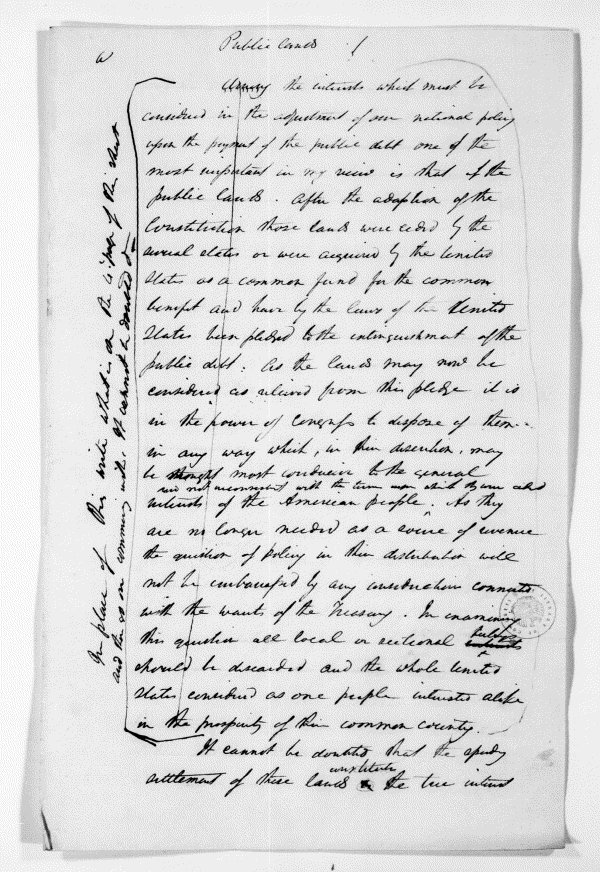 Public lands
Among the interests which must be
considered in the adjustment of our national policy
upon the payment of the public debt one of the
most important in my view is that of the
public lands. After the adoption of the
Constitution those lands were ceded by the
several states or were acquired by the United
States as a common fund for the common
benefit and have by the laws of the United
States been pledged to the extinguishment of the
public debt: As the lands may now be
considered as relieved from this pledge it is
in the power of Congress to dispose of them
in any way which, in their discretion, may
be thought most conducive to the general
and not inconsistent with the terms upon which they were ceded
interests of the American people. As they
are no longer needed as a source of revenue
the question of policy in their distribution will
not be embarrassed by any consideration connected
with the wants of the Treasury. In examining
this question all local or sectional feelings
interests
should be discarded and the whole United
States considered as one people interested alike
in the prosperity of their common country.
It cannot be doubted that the speedy
constitutes
settlement of these lands the true interest
In place of this write what is on the of this sheet
and then go on commencing with: It cannot be doubted &